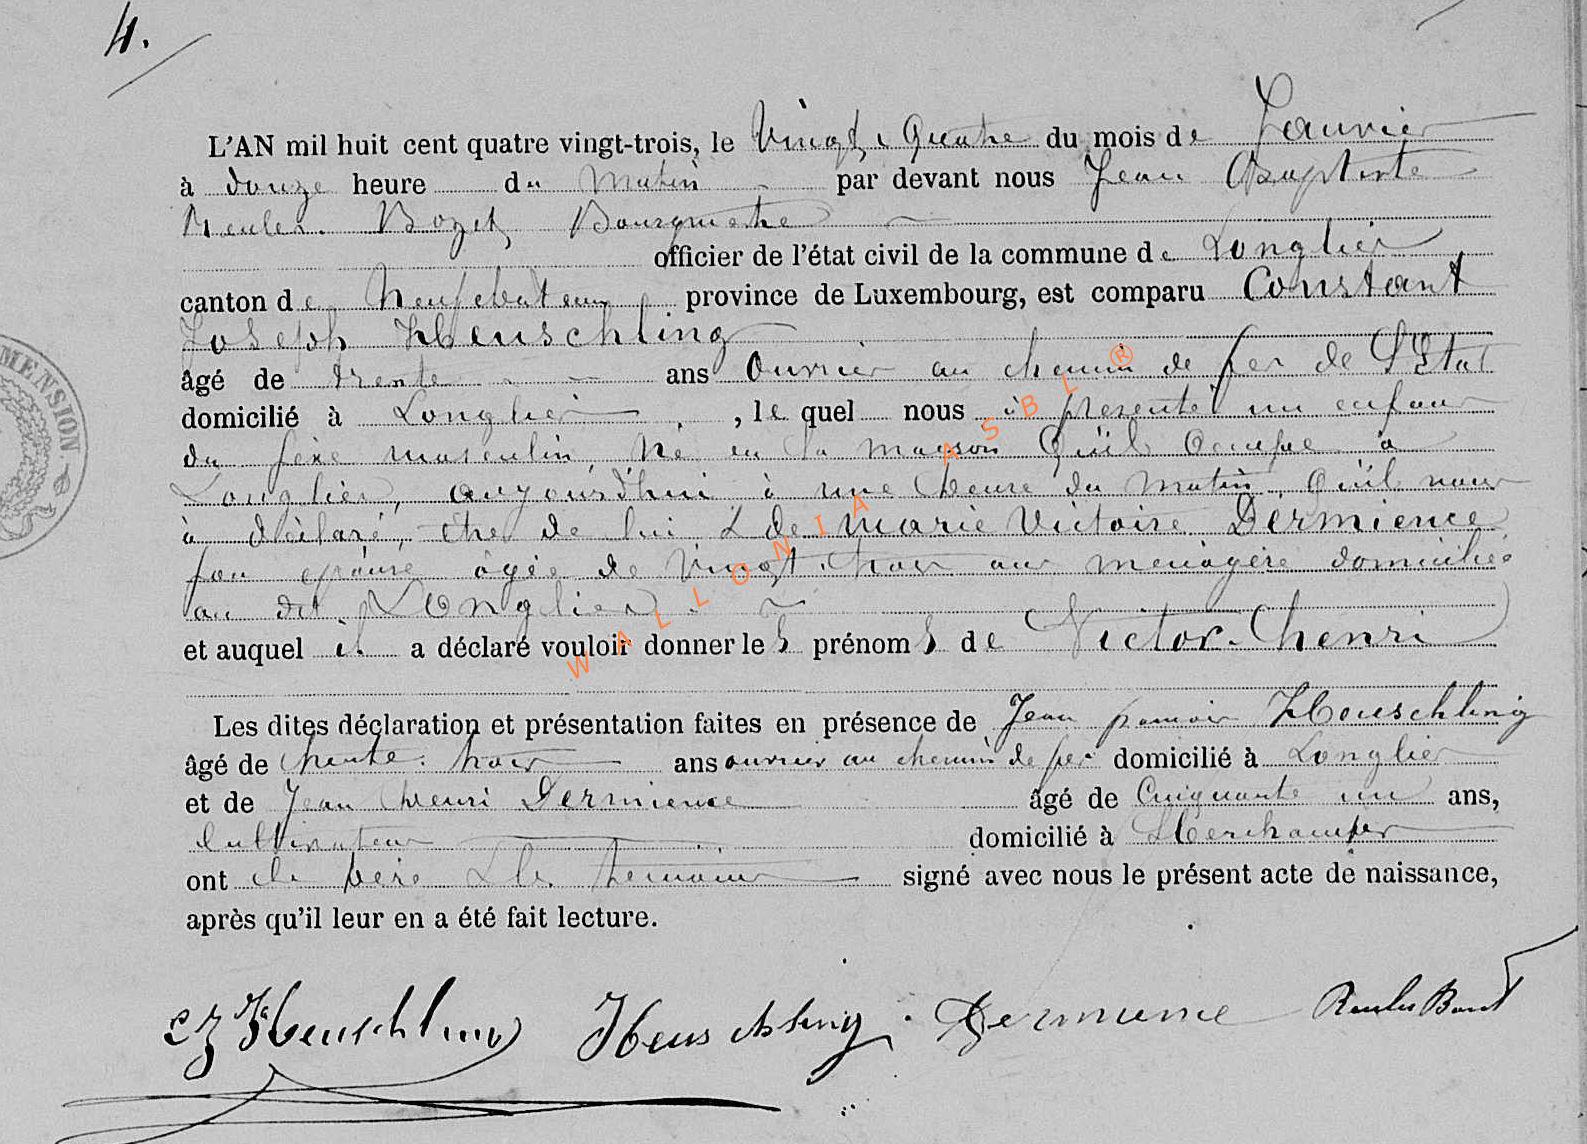 4.
L'AN mil huit cent quatre vingt-trois, le Vingt Quatre du mois de Janvier
à douze heure du Matin par devant nous Jean Baptiste
Meuler Bozet Bourgmestre
officier de l'état civil de la commune de Longlier
canton de Neufchateau province de Luxembourg, est comparu Constant
Joseph Heuschling
âgé de trente ans Ouvrier au chemin de fer de L'Etat
domicilié à Longlier, le quel nous à présenté un enfant
du sexe masculin, Né en la maison Qu'il Occupe à
Longlier, aujourd'hui à une heure du matin, Qu'il nous
à déclaré, être de lui & de Marie Victoire Dermience
son épouse âgée de Vingt trois ans menagère domiciliée
au dit Longlier.
et auquel il a déclaré vouloir donner les prénoms de Victor-Henri
Les dites déclaration et présentation faites en présence de Jean Heuschling
âgé de trente trois ans ouvrier au chemin de fer domicilié à Longlier
et de Jean Henri Dermience âgé de Cinquante un ans,
Cultivateur domicilié à
ont le père & les temoins signé avec nous le présent acte de naissance,
après qu'il leur en a été fait lecture.
Heuschling Heuschling Dermience
MENSION
WALLONIA ASBL ®